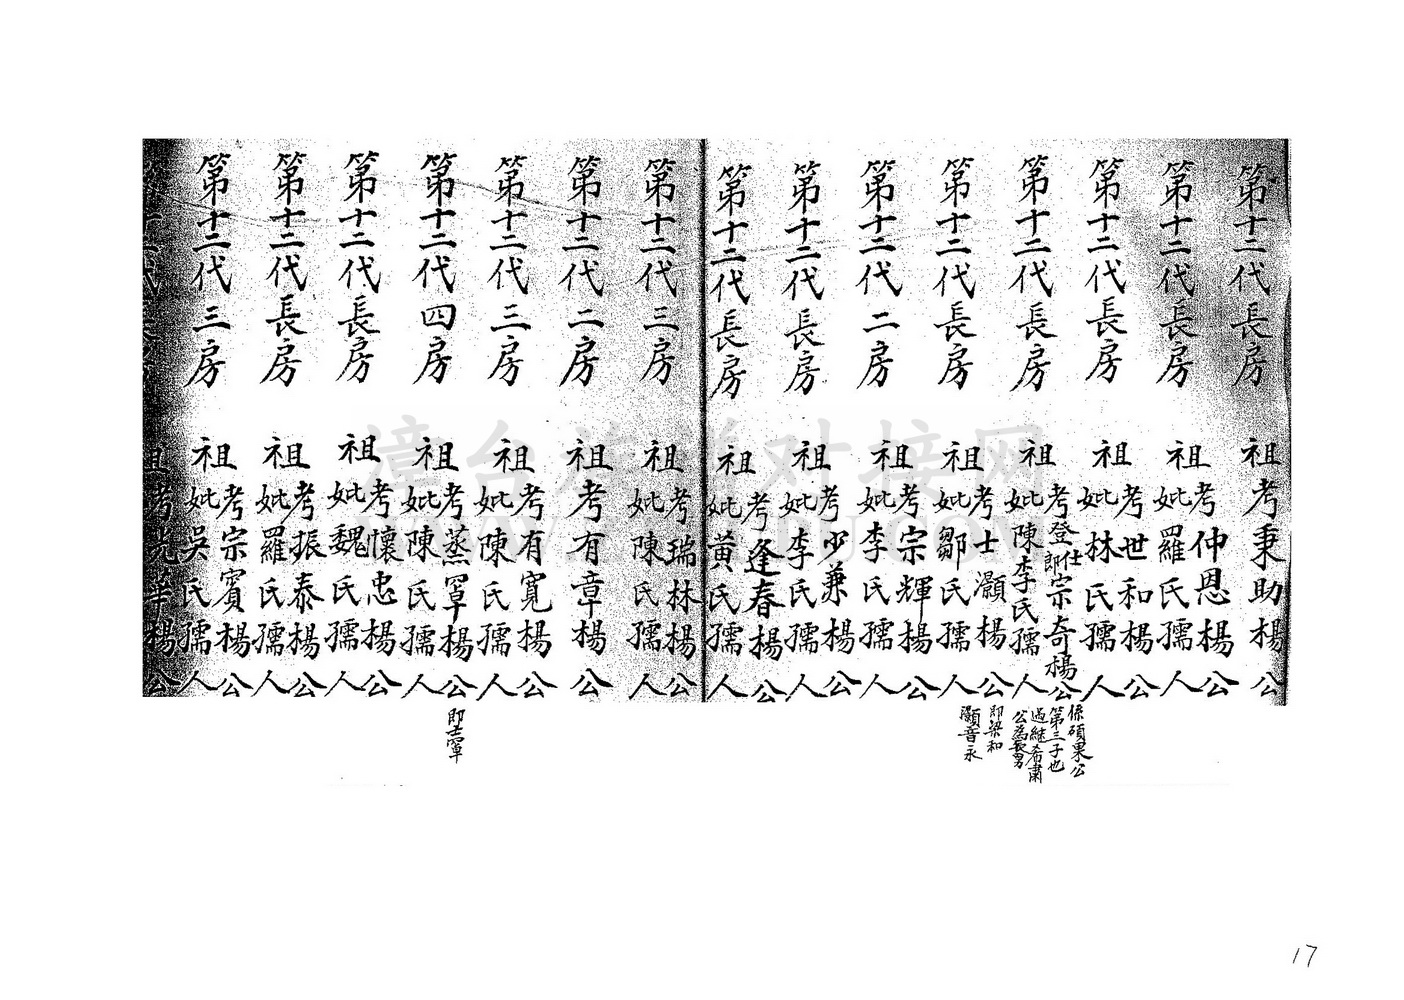 第十二代長房 祖考秉助楊公
第十二代長房 祖考仲恩楊公
妣羅氏孺人
第十二代長房 祖考世和楊公
妣林氏孺人
第十二代長房 祖考登仕郎宗奇楊公
妣陳李氏孺人
係碩果公
第三子也
過継希肅
公為長男
第十二代長房 祖考士灝楊公
妣鄒氏孺人
即梁和
灝音永
第十二代二房 祖考宗輝楊公
妣李氏孺人
第十二代長房 祖考少兼楊公
妣李氏孺人
第十二代長房 祖考逢春楊公
妣黃氏孺人
第十二代三房 祖考瑞林楊公
妣陳氏孺人
第十二代二房 祖考有章楊公
第十二代三房 祖考有寬楊公
妣陳氏孺人
第十二代四房 祖考蒸罩楊公
妣陳氏孺人
即士罩
第十二代長房 祖考懷忠楊公
妣魏氏孺人
第十二代長房 祖考振泰楊公
妣羅氏孺人
第十二代三房 祖考宗賓楊公
妣吳氏孺人
祖考光華楊公
17